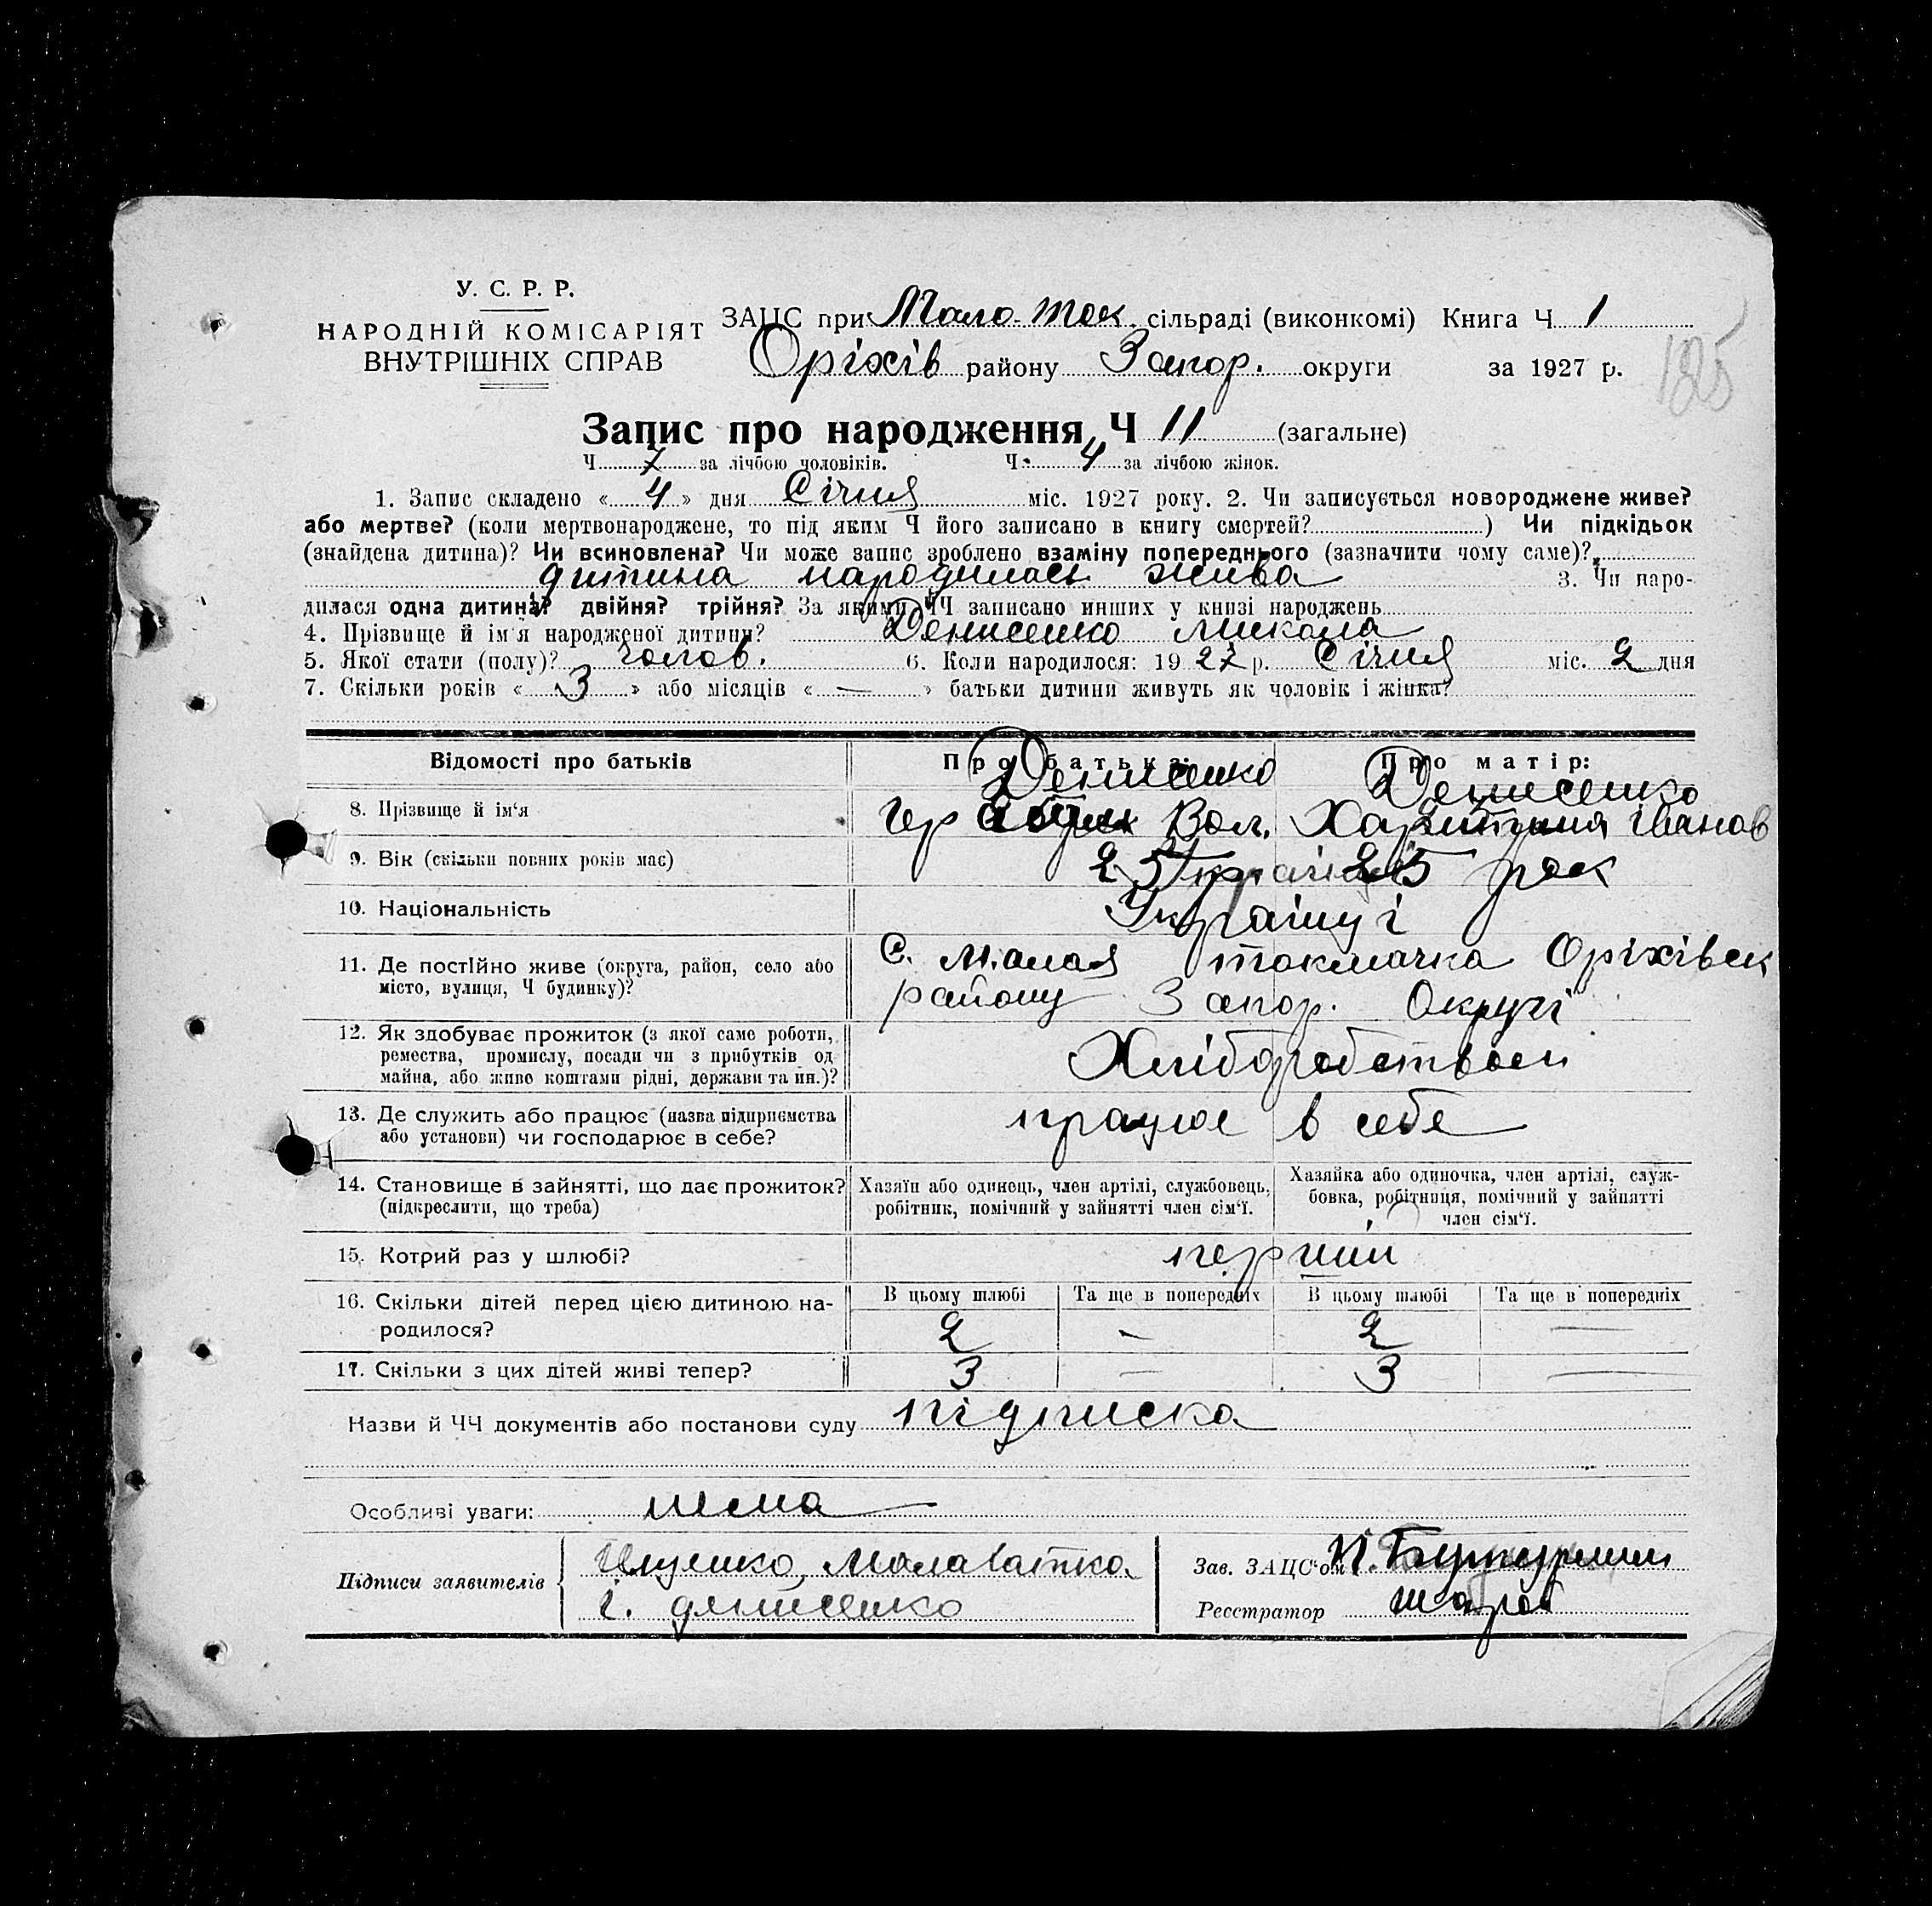 У. С. Р. Р.
НАРОДНІЙ КОМІСАРІЯТ
ВНУТРІШНІХ СПРАВ
ЗАЦС при Мало-Ток. сільраді (виконкомі) Книга Ч 1
Оріхів району Запор. округи за 1927 р.
185
Запис про народження Ч 11 (загальне)
Ч 7 за лічбою чоловіків. Ч 4 за лічбою жінок.
1. Запис складено « 4 » дня Січня міс. 1927 року. 2. Чи записується новороджене живе?
або мертве? (коли мертвонароджене, то під яким Ч його записано в книгу смертей? ) Чи підкідьок
(знайдена дитина)? Чи всиновлена? Чи може запис зроблено взаміну попереднього (зазначити чому саме)?
дитина народилась жива 3. Чи наро-
дилася одна дитина? двійня? трійня? За якими ЧЧ записано инших у книзі народжень
4. Прізвище й ім'я народженої дитини? Денисенко Микола
5. Якої стати (полу)? чолов. 6. Коли народилося: 1927 р. Січня міс. 2 дня
7. Скільки років « 3 » або місяців « — » батьки дитини живуть як чоловік і жінка?
Відомості про батьків Про батька: Про матір:
Денисенко Денисенко
8. Прізвище й ім'я Вол. Іванов
9. Вік (скільки повних років має) 25 25 рок
10. Національність Українці
11. Де постійно живе (округа, район, село або С. Малая токмачка Оріхівськ
місто, вулиця, Ч будинку)? району Запор. Округі
12. Як здобуває прожиток (з якої саме роботи,
ремества, промислу, посади чи з прибутків од Хліборобством
майна, або живе коштами рідні, держави та ин.)?
13. Де служить або працює (назва підприємства працює в себе
або установи) чи господарює в себе?
14. Становище в зайнятті, що дає прожиток? Хазяїн або одинець, член артілі, службовець, Хазяйка або одиночка, член артілі, служ-
(підкреслити, що треба) робітник, помічний у зайнятті член сім'ї. бовка, робітниця, помічний у зайнятті
член сім'ї.
15. Котрий раз у шлюбі? перший
16. Скільки дітей перед цією дитиною на- В цьому шлюбі Та ще в попередніх В цьому шлюбі Та ще в попередніх
родилося? 2 — 2 —
17. Скільки з цих дітей живі тепер? 3 — 3 —
Назви й ЧЧ документів або постанови суду підписка
Особливі уваги: нема
Підписи заявителів
і. денисенко
Зав. ЗАЦС'ом
Реєстратор